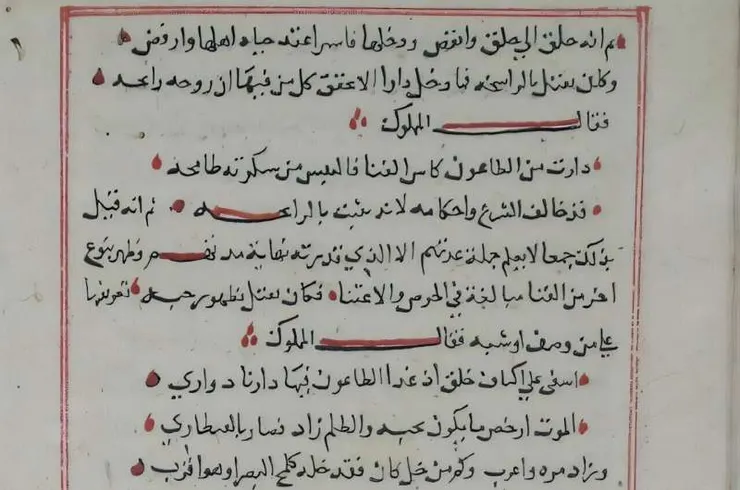 ثم انه حلق الي جلق وانفض ودخلها فاسرا عنه حياه اهلها وارفض
وكان يقتل بالرايحه فما دخل دارا الا تحقق كل من فيها ان روحه رايحه
فقال المملوك
دارت من الطاعون كاس الفنا فالعيس من سكرته طامحه
قد خالف الشرع واحكامه لانه يثبت بالرايحه ثم انه قتل
بذلك جمعا لا يعلم جملة عدتهم الا الذي قدرته نهاية مد تهم وظهر بنوع
اخر من الفنا مبالغة في الحرص والاعتنا فكان يقتل بظهور حبه
علي من وصف او شبه فقال المملوك
اسفي علي اكناف جلق اذ غدا الطاعون فيها ذا زناد واري
الموت ارخص ما يكون بحبه والظلم زاد فصار بالقنطاري
وزاد مره واعرب وكم من خل كان فقد خله كلمح البصر او هو اقرب